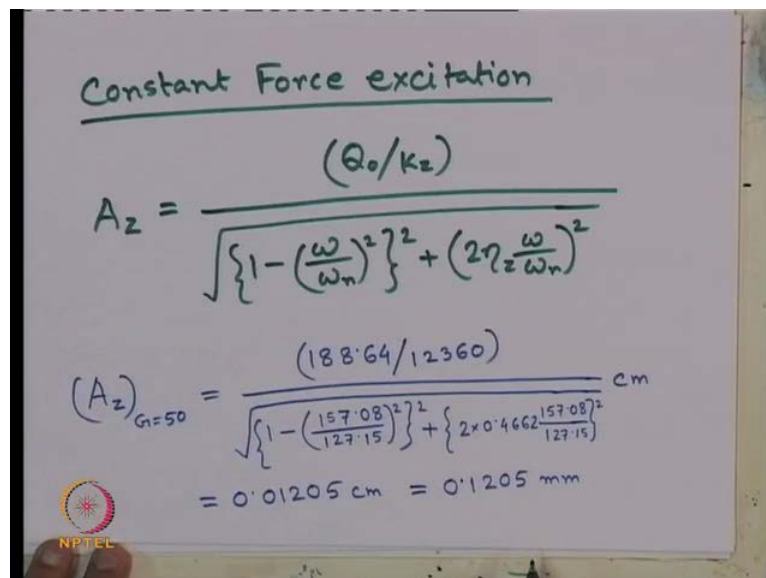 Constant Force excitation
A_z = (Q₀/K_z) / √({1 − (ω/ω_n)²}² + (2η_z ω/ω_n)²)
(A_z)_{G=50} = (188·64/12360) / √({1 − (157·08/127·15)²}² + {2×0·4662 157·08/127·15}²) cm
= 0·01205 cm = 0·1205 mm
NPTEL